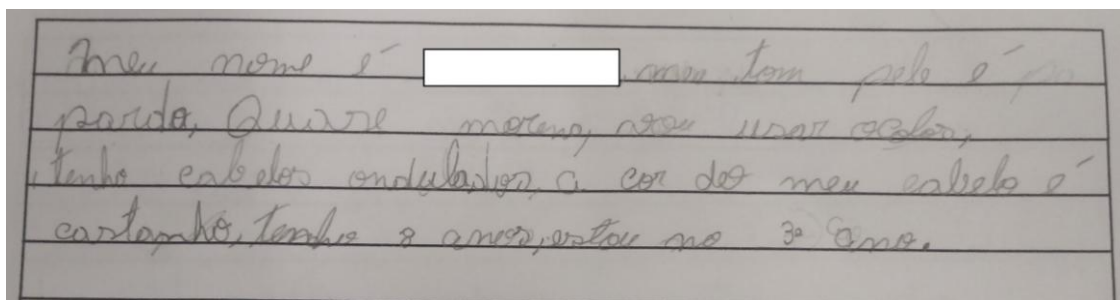 Meu nome é meu tom pele é pa
parda, Quase moreno, vou usar oculos,
tenho cabelos ondulados, a cor do meu cabelo é
castanho, tenho 8 anos, estou no 3º ano.